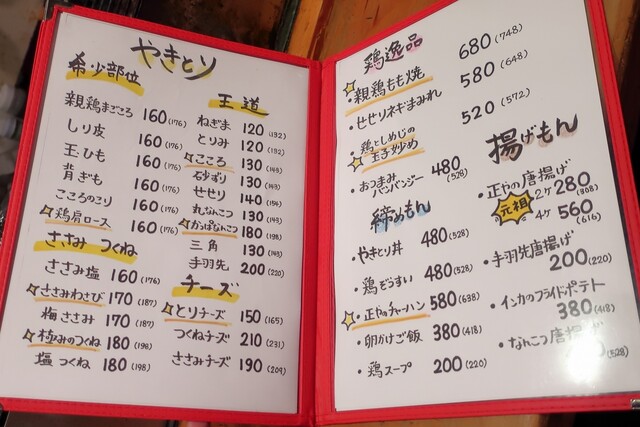 やきとり
希少部位
親鶏まごころ 160(176)
しり皮 160(176)
玉ひも 160(176)
背ぎも 160(176)
こころのこり 160(176)
鶏肩ロース 160(176)
ささみ つくね
ささみ塩 160(176)
ささみわさび 170(187)
梅ささみ 170(187)
極みのつくね 180(198)
塩つくね 180(198)
王道
ねぎま 120(132)
とりみ 120(132)
こころ 130(143)
砂ずり 130(143)
せせり 140(154)
丸なんこつ 130(143)
かっぱなんこつ 180(198)
三角 130(143)
手羽先 200(220)
チーズ
とりチーズ 150(165)
つくねチーズ 210(231)
ささみチーズ 190(209)
鶏逸品
・親鶏もも焼 680(748)
・せせりネギまみれ 580(648)
・鶏としめじの玉子炒め 520(572)
・おつまみバンバンジー 480(528)
締めもん
・やきとり丼 480(528)
・鶏ぞうすい 480(528)
・正やのチャーハン 580(638)
・卵かけご飯 380(418)
・鶏スープ 200(220)
揚げもん
・正やの唐揚げ
元祖
2ケ 280(308)
4ケ 560(616)
・手羽先唐揚げ
200(220)
・インカのフライドポテト
380(418)
・なんこつ唐揚げ